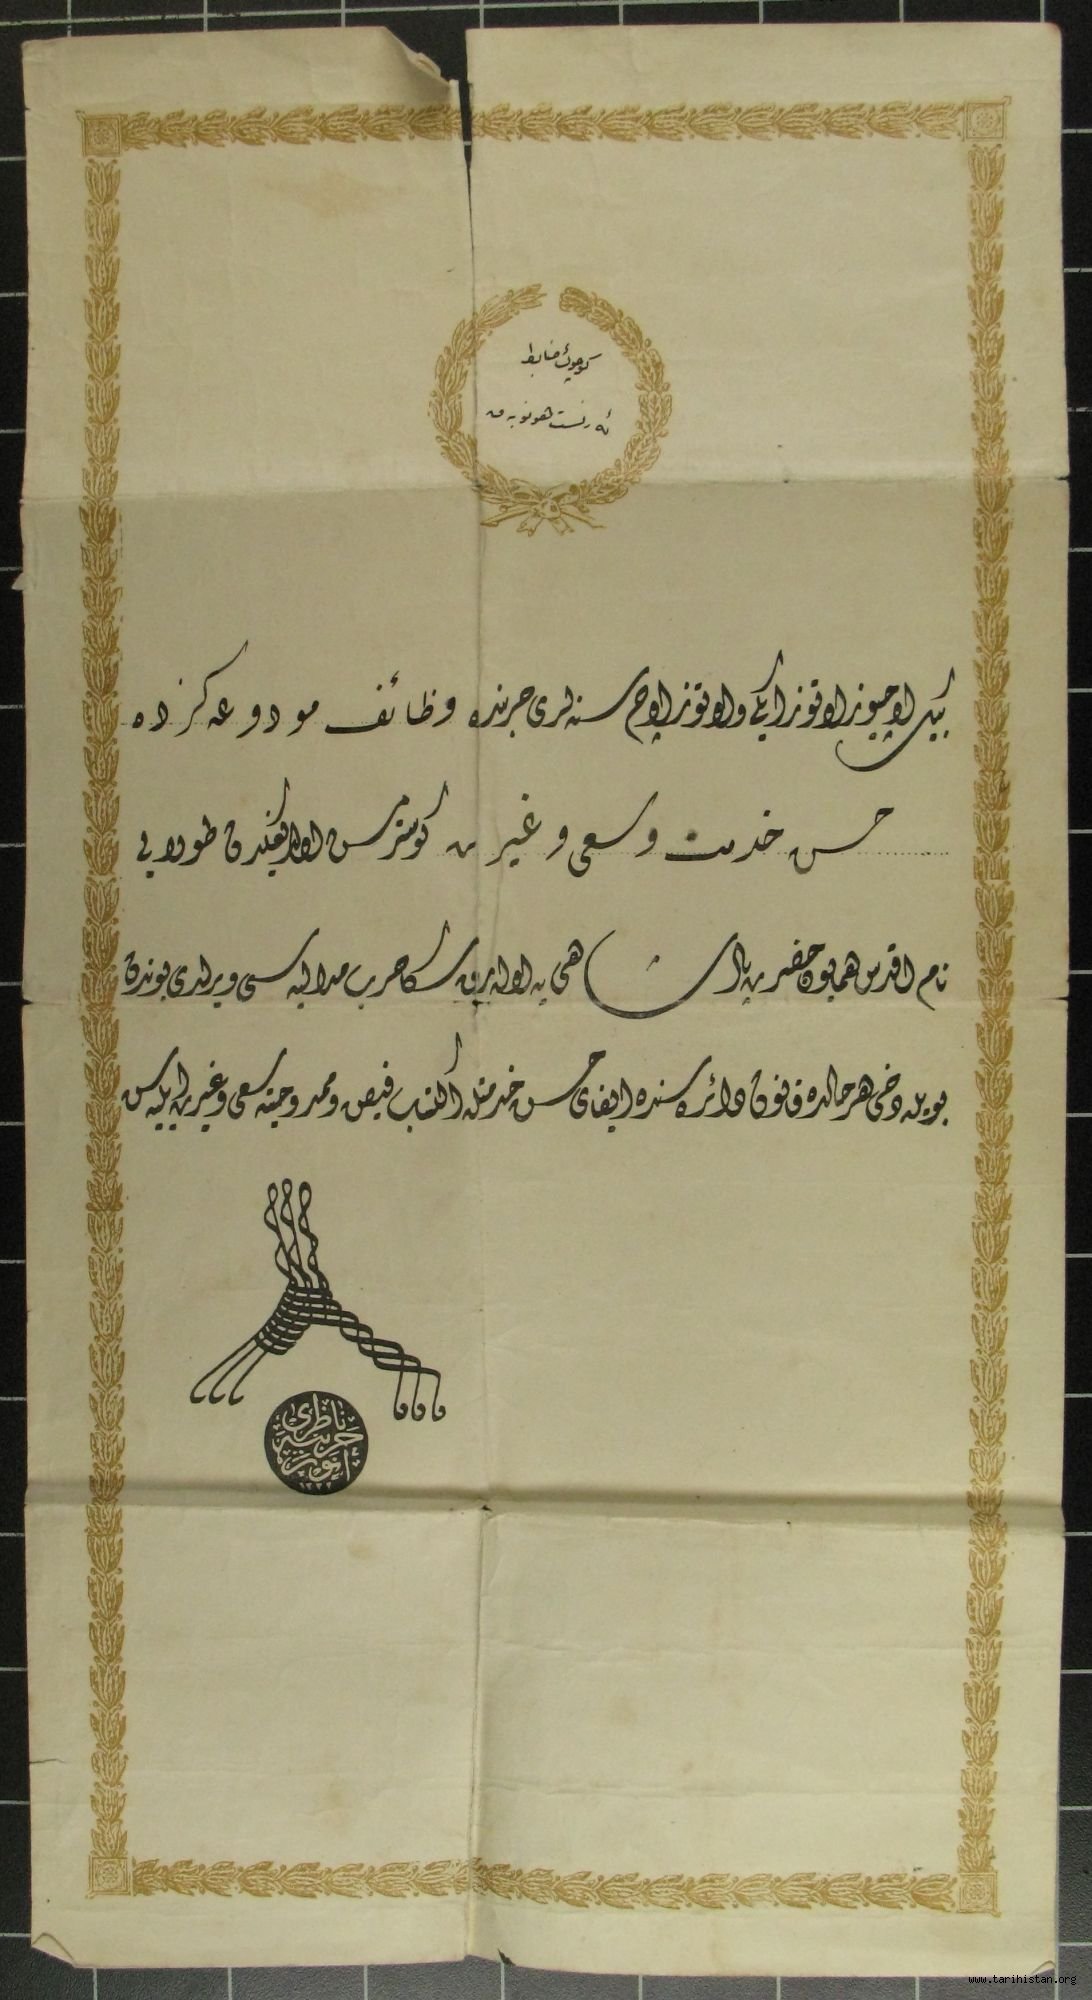 كوچوك ضابط
ئه رنست هونوبه ق
بیك اوچیوز اوتوز ایكی و اوتوز اوچ سنه لری حربنده وظائف مودوعه كزده
حسن خدمت و سعی و غیرت كوسترمش اولدیغكزدن طولایی
نام اقدس همایون حضرت پادشاهی یه اوله رق سكا حرب مدالیه سی ویرلدی بوندن
بویله دخی هر حالده قانون دائره سنده ایفای حسن خدمتله اكتساب فیض و ممدوحیته سعی و غیرت ایلیه سن
حربیه ناظری
انور
١٣٣٢
www.tarihistan.org